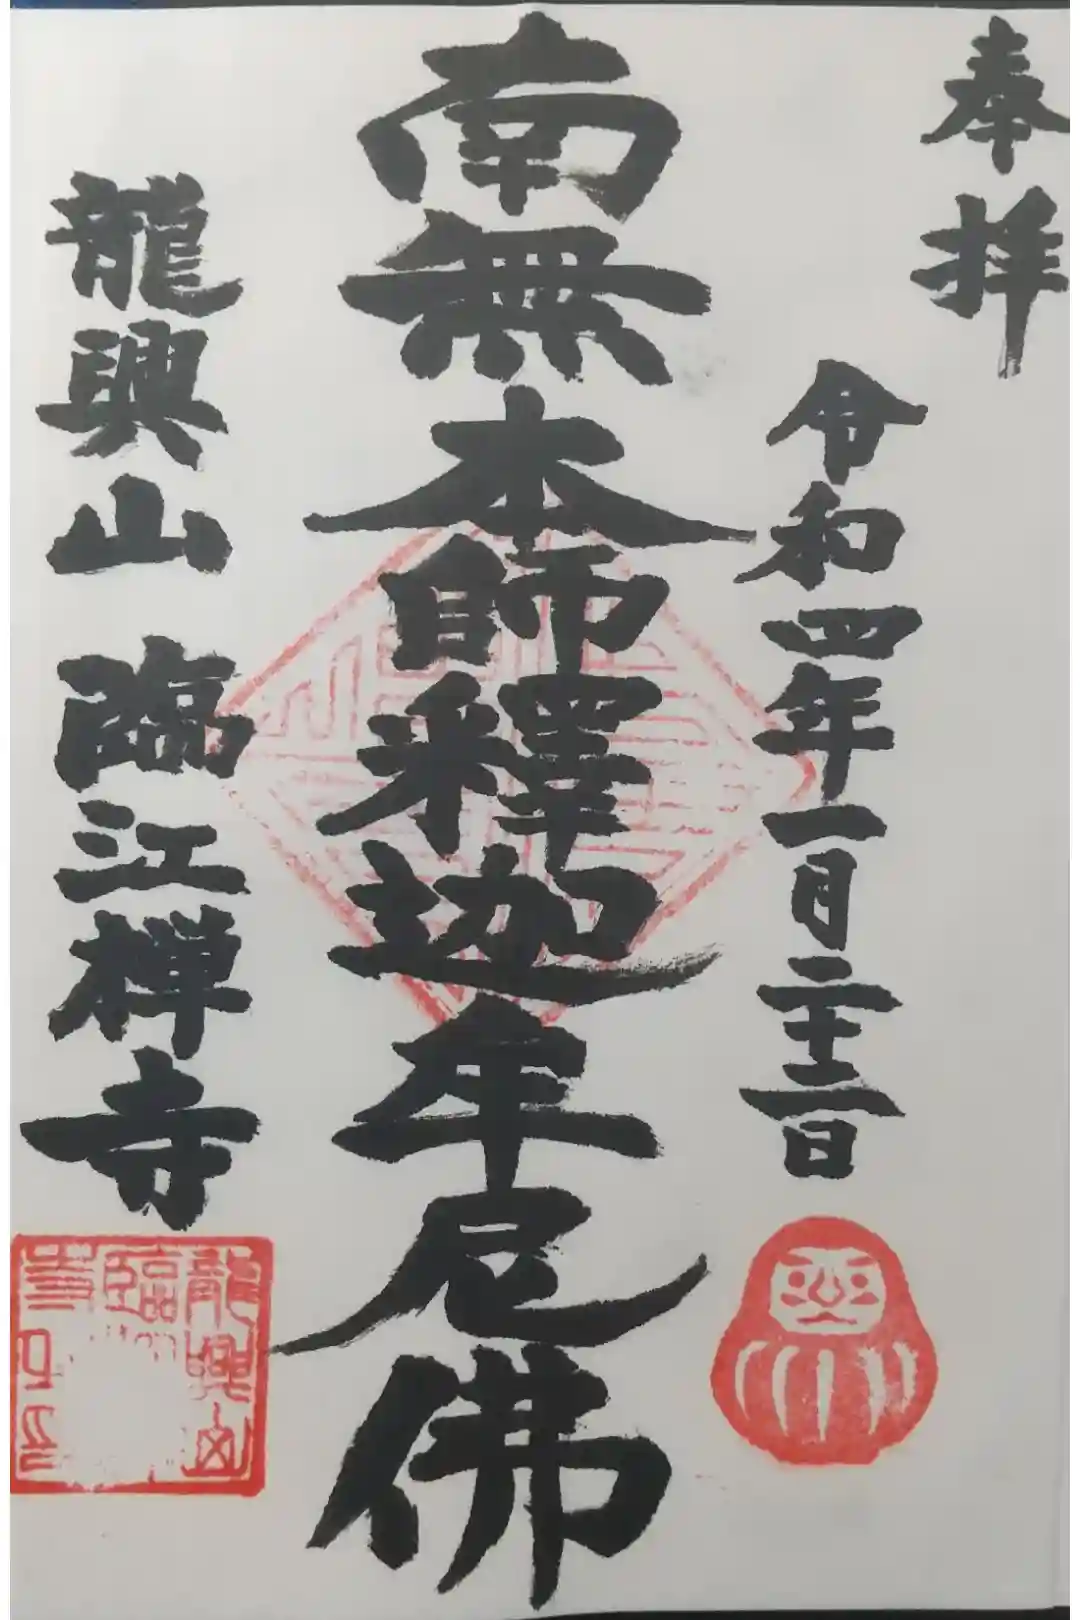 奉拝
令和四年一月二十二日
南無本師釋迦牟尼佛
龍興山 臨江禅寺
龍興山
臨